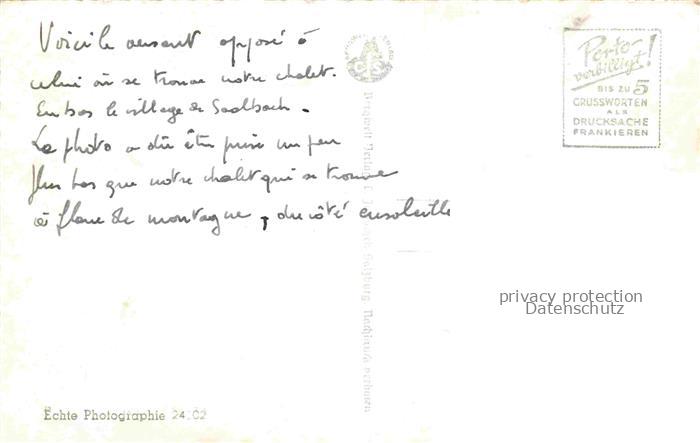 Voici le versant opposé à
celui où se trouve notre chalet.
En bas le village de Saalbach.
La photo a dû être prise un peu
plus bas que notre chalet qui se trouve
à flanc de montagne, du côté ensoleillé
Porto-
verbilligt!
BIS ZU 5
GRUSSWORTEN
ALS
DRUCKSACHE
FRANKIEREN
Salzburg. Nachdruck verboten
privacy protection
Datenschutz
Echte Photographie 24.02